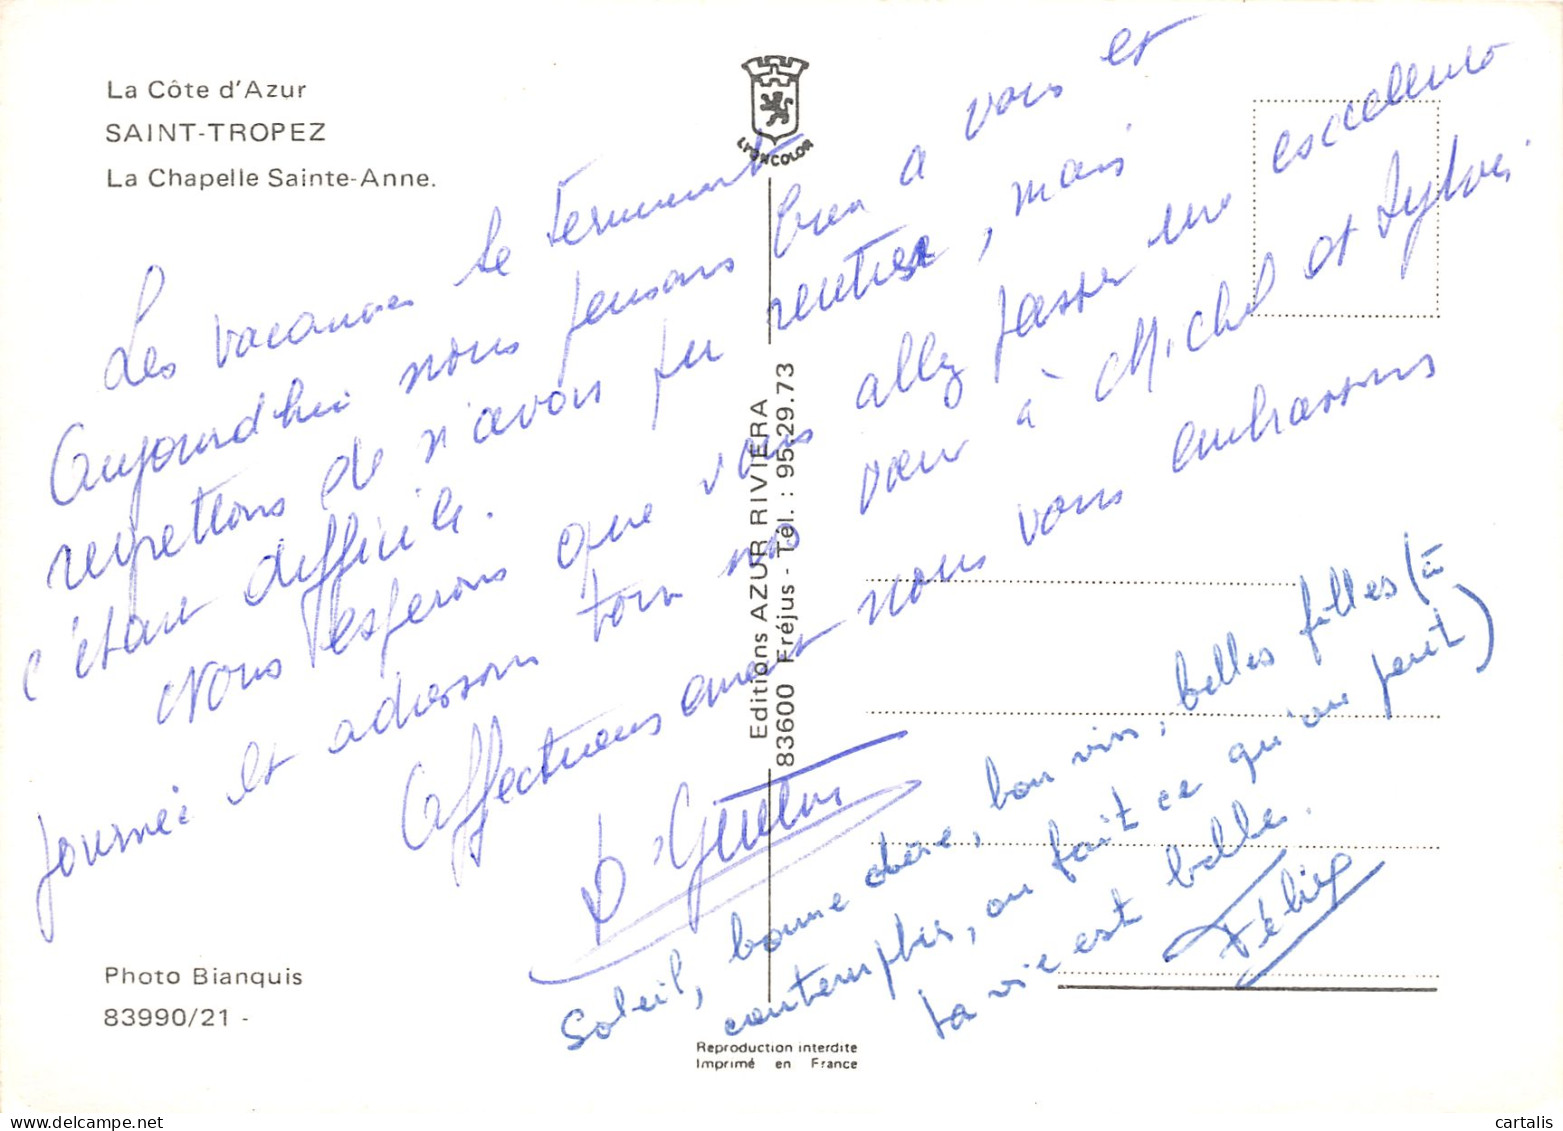 La Côte d'Azur
SAINT-TROPEZ
La Chapelle Sainte-Anne.
LYONCOLOR
Les vacances se terminent
Aujourd'hui nous pensons bien a vous et
regrettons de n'avoir pu rentrer, mais
c'était difficile.
Nous esperons que vous allez passer une excellente
journée et adressons tous nos vœux à Michel et Sylvie.
Affectueusement nous vous embrassons
Soleil, bonne chère, bon vin, belles filles (à
contempler, on fait ce qu'on peut)
la vie est belle.
Félix
Editions AZUR RIVIERA
83600 Fréjus - Tél. : 95-29.73
Photo Bianquis
83990/21 -
Reproduction interdite
Imprimé en France
cartalis